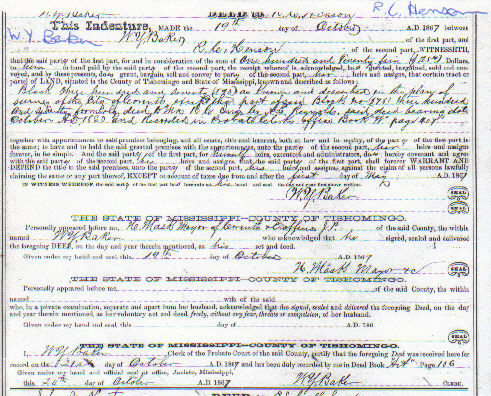 W.Y. Baker DEED to R.C. Henson
R C Henson
W Y Baker
This Indenture, MADE the 19th day of October A.D. 1867 between
W Y Baker of the first part, and
R. C. Henson of the second part, WITNESSETH,
that the said party of the first part, for and in consideration of the sum of One hundred and Twenty five Dollars,
to him in hand paid by the party of the second part, the receipt whereof is acknowledged, has bargained, sold and con-
veyed, and by these presents, does grant, bargain, sell and convey to party of the second part, his heirs and assigns, that certain tract or
parcel of LAND, situated in the County of Tishomingo and State of Mississippi, known and described as follows:
Block three hundred and seventy as known and described in the plan of
survey of the city of Corinth
October
1863 and recorded in Probate Clerks office Book page
together with appurtenances to said premises belonging, and all estate, title and interest, both at law and in equity, of the party of the first part in the
same; to have and to hold the said granted premises with the appurtenances, unto the party of the second part, his heirs and assigns
forever, in fee simple. And the said party of the first part, for himself heirs, executors and administrators, does hereby covenant and agree
with the said party of the second part, his heirs and assigns that the said party of the first part, shall forever WARRANT AND
DEFEND the title to the said premises, unto the party of the second part, his heirs and assigns, against the claim of all persons lawfully
claiming the same or any part thereof, EXCEPT on account of taxes due from and after the first day of May A.D. 1867
IN WITNESS WHEREOF, the said party of the first part has hereunto set his hand and seal the day and year first above written.
W Y Baker
SEAL
THE STATE OF MISSISSIPPI—COUNTY OF TISHOMINGO.
Personally appeared before me, H. Mask Mayor of Corinth & Exofficio J.P. of the said County, the within
named W Y Baker who acknowledged that he signed, sealed and delivered
the foregoing DEED, on the day and year therein mentioned, as his act and deed.
Given under my hand and seal, this 19th day of October A.D. 1867
H. Mask Mayor &c
SEAL
THE STATE OF MISSISSIPPI—COUNTY OF TISHOMINGO.
Personally appeared before me, of the said County, the within
named wife of the said
who, in a private examination, separate and apart from her husband, acknowledged that she signed, sealed and delivered the foregoing Deed, on the day
and year therein mentioned as her voluntary act and deed, freely, without any fear, threats or compulsion, of her husband.
Given under my hand and seal, this day of A.D. 186
SEAL
THE STATE OF MISSISSIPPI—COUNTY OF TISHOMINGO.
I, W Y Baker Clerk of the Probate Court of the said County, certify that the foregoing Deed was received for
record on the 21st day of October A.D. 1867 and has been duly recorded by me in Deed Book Page 186
Given under my hand and official seal at office, Jacinto, Mississippi,
this 26th day of October A.D. 1867 W Y Baker CLERK.